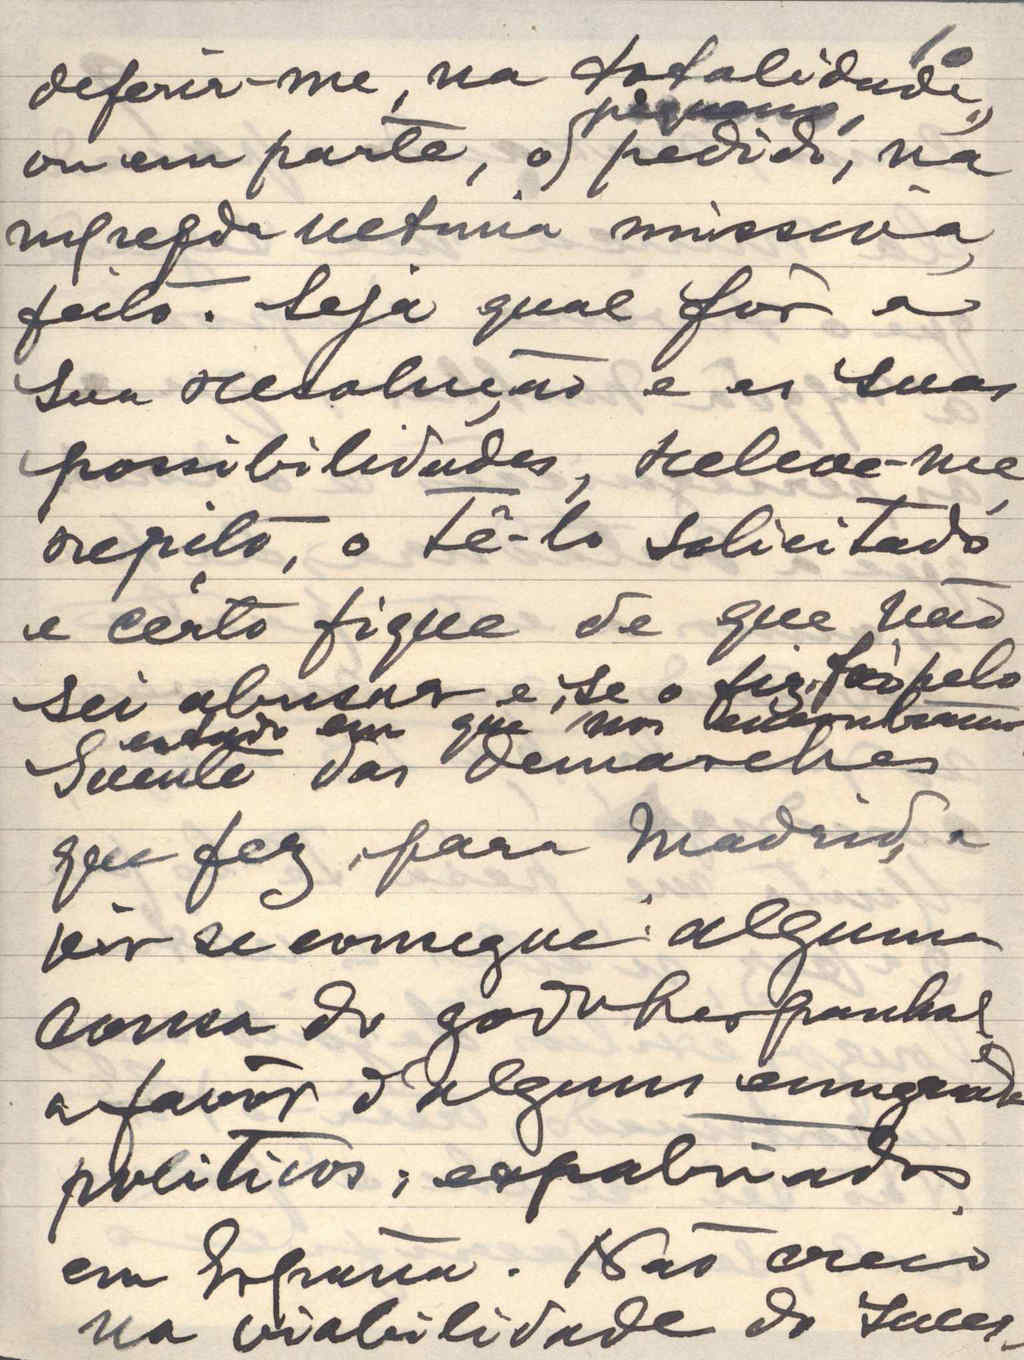 10
deferir-me, na totalidade,
ou em parte, o pequeno pedido, na
missiva,
feito. Seja qual fôr a
sua resolução e as suas
possibilidades, releve-me,
repito, o tê-lo solicitado
e cérto fique de que não
sei abusar e, se o fiz, foi pelo
estado em que nos encontramos
Sciente das demarches
que fez, para Madrid, a
vêr se consegue alguma
cousa do govº hespanhol,
a favôr d'alguns emigrados
politicos, expatriados
em Espanha. Não creio
na viabilidade do suces-